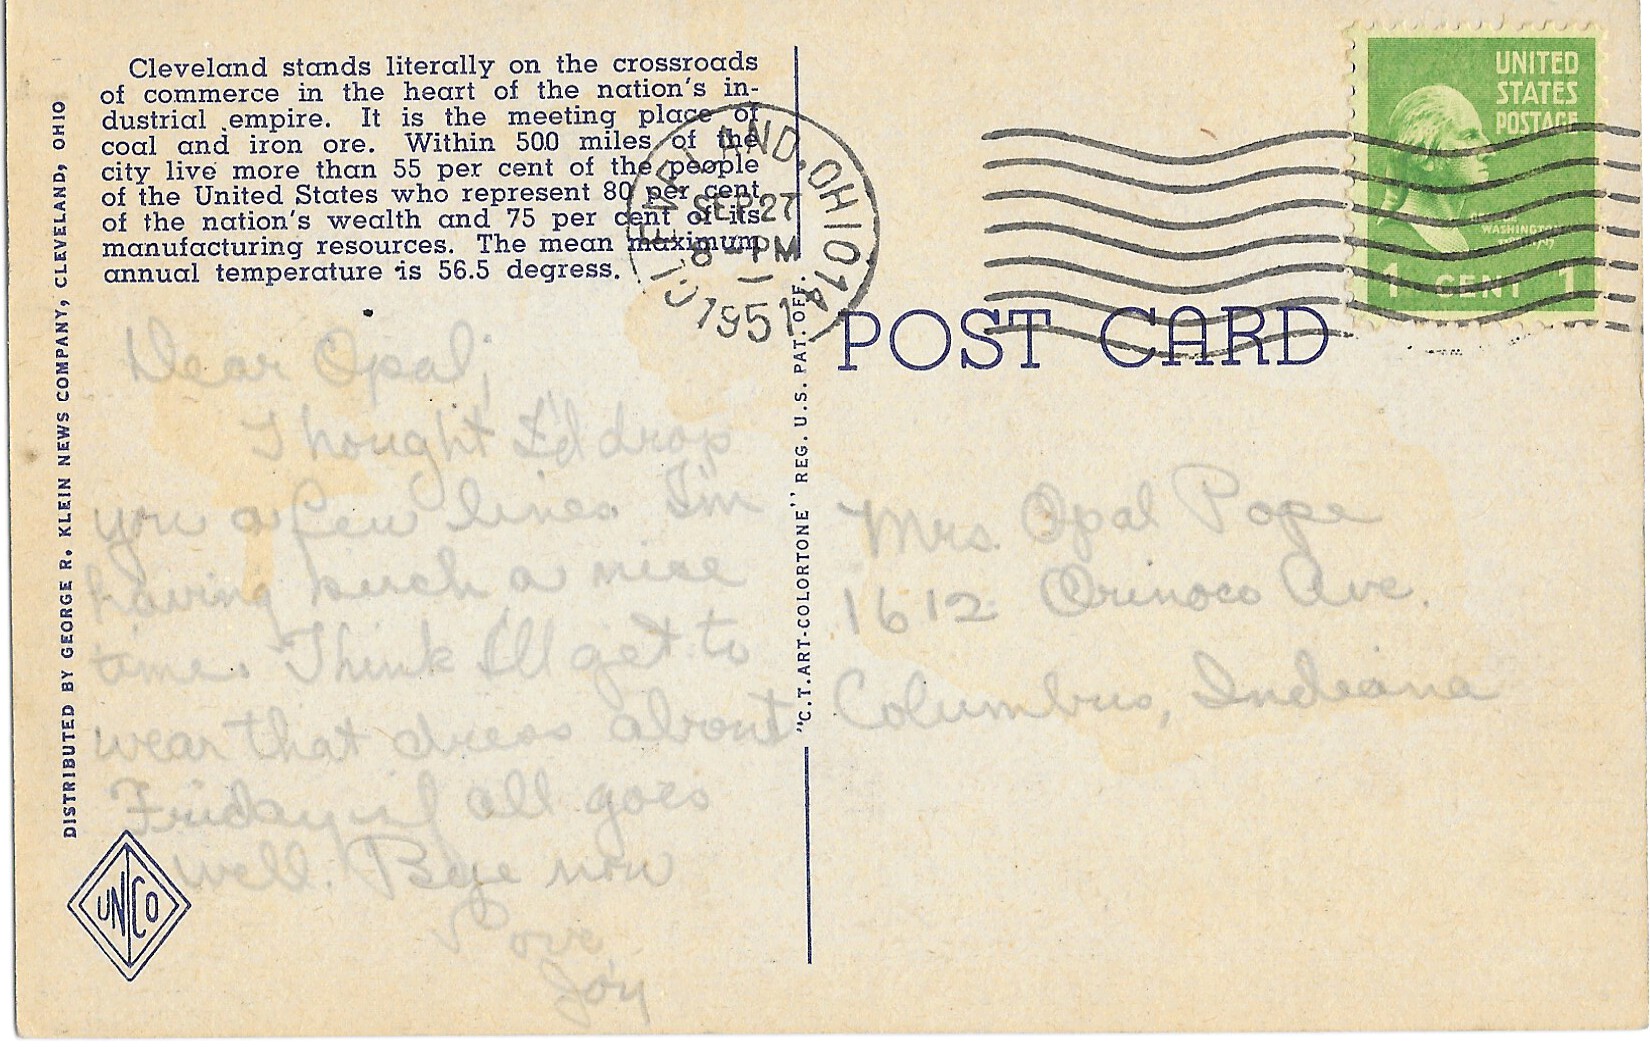 Cleveland stands literally on the crossroads
of commerce in the heart of the nation's in-
dustrial empire. It is the meeting place of
coal and iron ore. Within 500 miles of the
city live more than 55 per cent of the people
of the United States who represent 80 per cent
of the nation's wealth and 75 per cent of its
manufacturing resources. The mean maximum
annual temperature is 56.5 degress.
DISTRIBUTED BY GEORGE R. KLEIN NEWS COMPANY, CLEVELAND, OHIO
Dear Opal;
Thought I'd drop
you a few lines. I'm
having such a nice
time. Think I'll get to
wear that dress about
Friday if all goes
well. Bye now
Love,
Joy
UNCO
"C.T.ART-COLORTONE" REG. U.S. PAT. OFF.
CLEVELAND, OHIO 14
SEP 27
8 - PM
1951
POST CARD
UNITED
STATES
POSTAGE
WASHINGTON
1 CENT 1
Mrs. Opal Pope
1612 Orinoco Ave.
Columbus, Indiana